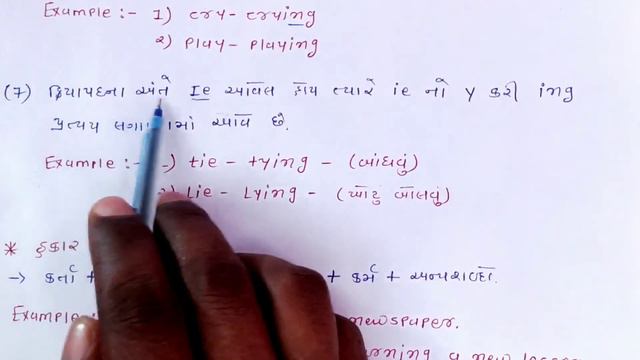 Example :- 1) cry - crying
2) play - playing
(7) ક્રિયાપદના અંતે Ie આવેલ હોય ત્યારે ie નો y કરી ing
પ્રત્યય લગા માં આવે છે.
Example :- ) tie - tying - (બાંધવું)
2) Lie - Lying - (ખોટું બોલવું)
* હકાર
→ કર્તા + + કર્મ + અન્યશબ્દો.
Example : newspaper.
rning a new lesson